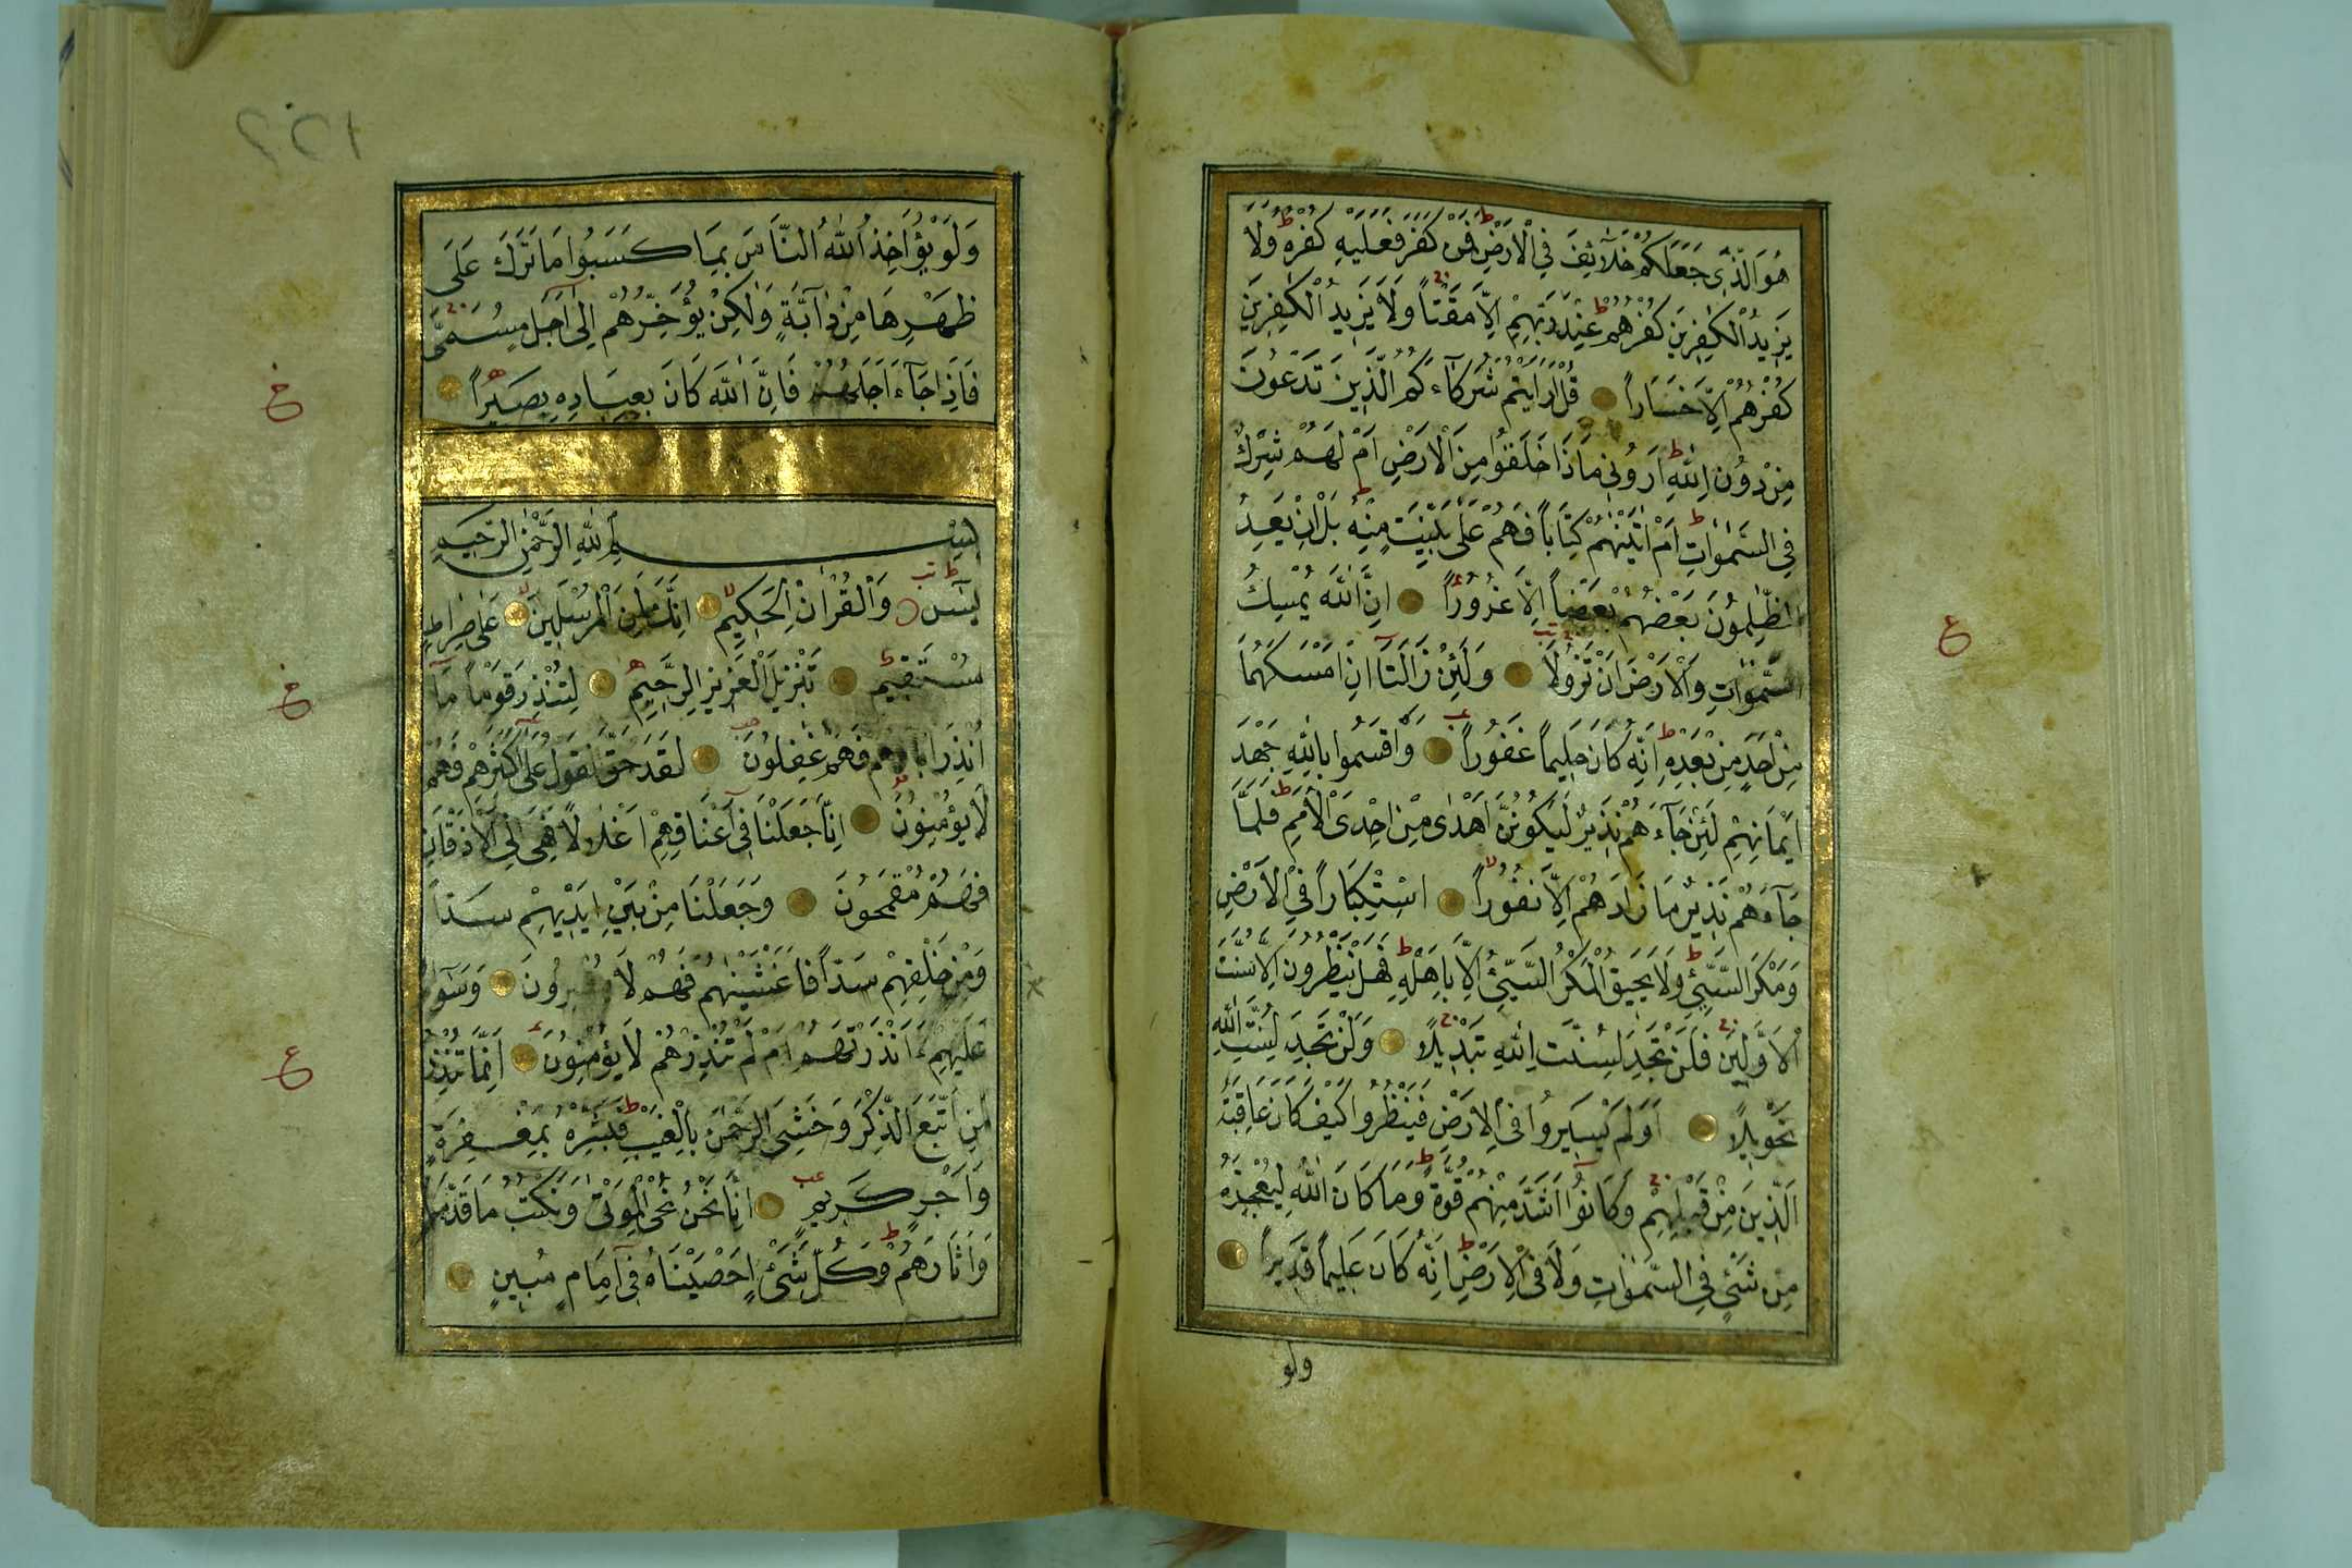 هُوَ الَّذِي جَعَلَكُمْ خَلَائِفَ فِي الْاَرْضِ فَمَنْ كَفَرَ فَعَلَيْهِ كُفْرُهُ وَلَا
يَزِيدُ الْكٰفِرِينَ كُفْرُهُمْ عِنْدَ رَبِّهِمْ اِلَّا مَقْتًا وَلَا يَزِيدُ الْكٰفِرِينَ
كُفْرُهُمْ اِلَّا خَسَارًا قُلْ اَرَاَيْتُمْ شُرَكَآءَكُمُ الَّذِينَ تَدْعُونَ
مِنْ دُونِ اللّٰهِ اَرُونِي مَاذَا خَلَقُوا مِنَ الْاَرْضِ اَمْ لَهُمْ شِرْكٌ
فِي السَّمٰوٰاتِ اَمْ اٰتَيْنٰهُمْ كِتَابًا فَهُمْ عَلٰى بَيِّنَتٍ مِنْهُ بَلْ اِنْ يَعِدُ
الظّٰلِمُونَ بَعْضُهُمْ بَعْضًا اِلَّا غُرُورًا اِنَّ اللّٰهَ يُمْسِكُ
السَّمٰوٰاتِ وَالْاَرْضَ اَنْ تَزُولَا وَلَئِنْ زَالَتَآ اِنْ اَمْسَكَهُمَا
مِنْ اَحَدٍ مِنْ بَعْدِهِ اِنَّهُ كَانَ حَلِيمًا غَفُورًا وَاَقْسَمُوا بِاللّٰهِ جَهْدَ
اَيْمَانِهِمْ لَئِنْ جَآءَهُمْ نَذِيرٌ لَيَكُونُنَّ اَهْدٰى مِنْ اِحْدَى الْاُمَمِ فَلَمَّا
جَآءَهُمْ نَذِيرٌ مَا زَادَهُمْ اِلَّا نُفُورًا اسْتِكْبَارًا فِي الْاَرْضِ
وَمَكْرَ السَّيِّئِ وَلَا يَحِيقُ الْمَكْرُ السَّيِّئُ اِلَّا بِاَهْلِهِ فَهَلْ يَنْظُرُونَ اِلَّا سُنَّتَ
الْاَوَّلِينَ فَلَنْ تَجِدَ لِسُنَّتِ اللّٰهِ تَبْدِيلًا وَلَنْ تَجِدَ لِسُنَّتِ اللّٰهِ
تَحْوِيلًا اَوَلَمْ يَسِيرُوا فِي الْاَرْضِ فَيَنْظُرُوا كَيْفَ كَانَ عَاقِبَةُ
الَّذِينَ مِنْ قَبْلِهِمْ وَكَانُوٓا اَشَدَّ مِنْهُمْ قُوَّةً وَمَا كَانَ اللّٰهُ لِيُعْجِزَهُ
مِنْ شَيْءٍ فِي السَّمٰوٰاتِ وَلَا فِي الْاَرْضِ اِنَّهُ كَانَ عَلِيمًا قَدِيرًا
ولو
ع
وَلَوْ يُؤَاخِذُ اللّٰهُ النَّاسَ بِمَا كَسَبُوا مَا تَرَكَ عَلٰى
ظَهْرِهَا مِنْ دَآبَّةٍ وَلٰكِنْ يُؤَخِّرُهُمْ اِلٰٓى اَجَلٍ مُسَمًّى
فَاِذَا جَآءَ اَجَلُهُمْ فَاِنَّ اللّٰهَ كَانَ بِعِبَادِهِ بَصِيرًا
بِسْمِ اللّٰهِ الرَّحْمٰنِ الرَّحِيمِ
يٰسٓ وَالْقُرْاٰنِ الْحَكِيمِ اِنَّكَ لَمِنَ الْمُرْسَلِينَ عَلٰى صِرَاطٍ
مُسْتَقِيمٍ تَنْزِيلَ الْعَزِيزِ الرَّحِيمِ لِتُنْذِرَ قَوْمًا مَآ
اُنْذِرَ اٰبَآؤُهُمْ فَهُمْ غٰفِلُونَ لَقَدْ حَقَّ الْقَوْلُ عَلٰٓى اَكْثَرِهِمْ فَهُمْ
لَا يُؤْمِنُونَ اِنَّا جَعَلْنَا فِيٓ اَعْنَاقِهِمْ اَغْلٰلًا فَهِيَ اِلَى الْاَذْقَانِ
فَهُمْ مُقْمَحُونَ وَجَعَلْنَا مِنْ بَيْنِ اَيْدِيهِمْ سَدًّا
وَمِنْ خَلْفِهِمْ سَدًّا فَاَغْشَيْنٰهُمْ فَهُمْ لَا يُبْصِرُونَ وَسَوَآءٌ
عَلَيْهِمْ ءَاَنْذَرْتَهُمْ اَمْ لَمْ تُنْذِرْهُمْ لَا يُؤْمِنُونَ اِنَّمَا تُنْذِرُ
مَنِ اتَّبَعَ الذِّكْرَ وَخَشِيَ الرَّحْمٰنَ بِالْغَيْبِ فَبَشِّرْهُ بِمَغْفِرَةٍ
وَاَجْرٍ كَرِيمٍ اِنَّا نَحْنُ نُحْيِ الْمَوْتٰى وَنَكْتُبُ مَا قَدَّمُوا
وَاٰثَارَهُمْ وَكُلَّ شَيْءٍ اَحْصَيْنَاهُ فِيٓ اِمَامٍ مُبِينٍ
ع